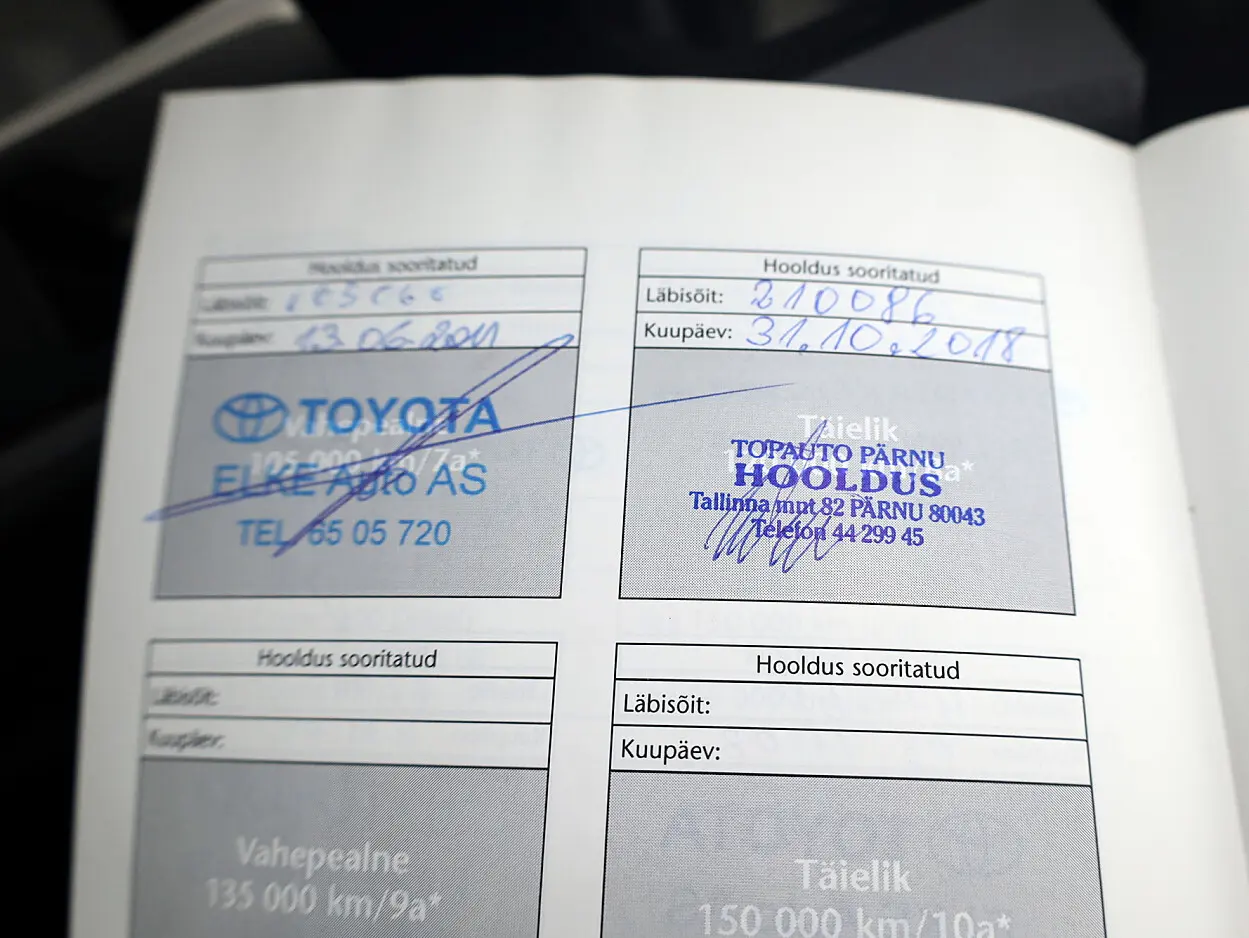 Hooldus sooritatud
Läbisõit:
Kuupäev: 13 06 2011
TOYOTA
Vahepealne
105 000 km/7a*
ELKE Auto AS
TEL 65 05 720
Hooldus sooritatud
Läbisõit: 210086
Kuupäev: 31.10.2018
Täielik
TOPAUTO PÄRNU
HOOLDUS
Tallinna mnt 82 PÄRNU 80043
Telefon 44 299 45
Hooldus sooritatud
Läbisõit:
Kuupäev:
Vahepealne
135 000 km/9a*
Hooldus sooritatud
Läbisõit:
Kuupäev:
Täielik
150 000 km/10a*